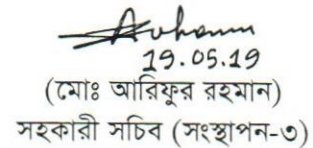 19.05.19
(মোঃ আরিফুর রহমান)
সহকারী সচিব (সংস্থাপন-৩)